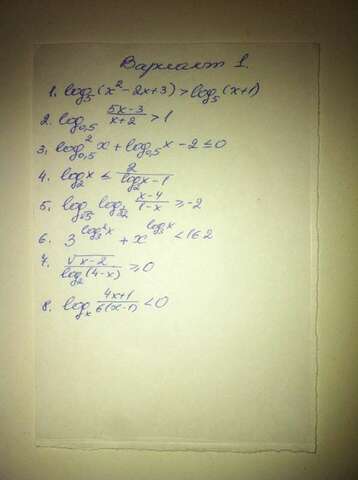 Вариант 1.
1. log₅(x²-2x+3)>log₅(x+1)
2. log₀,₅ (5x-3)/(x+2) >1
3. log²₀,₅x+log₀,₅x-2≤0
4. log₂x ≤ 2/(log₂x-1)
5. log (x-4)/(1-x) ≥-2
6. 3^(log x) + x^(log x) <162
7. √(x-2)/(log₂(4-x)) ≥0
8. logₓ (4x+1)/(6(x-1)) <0